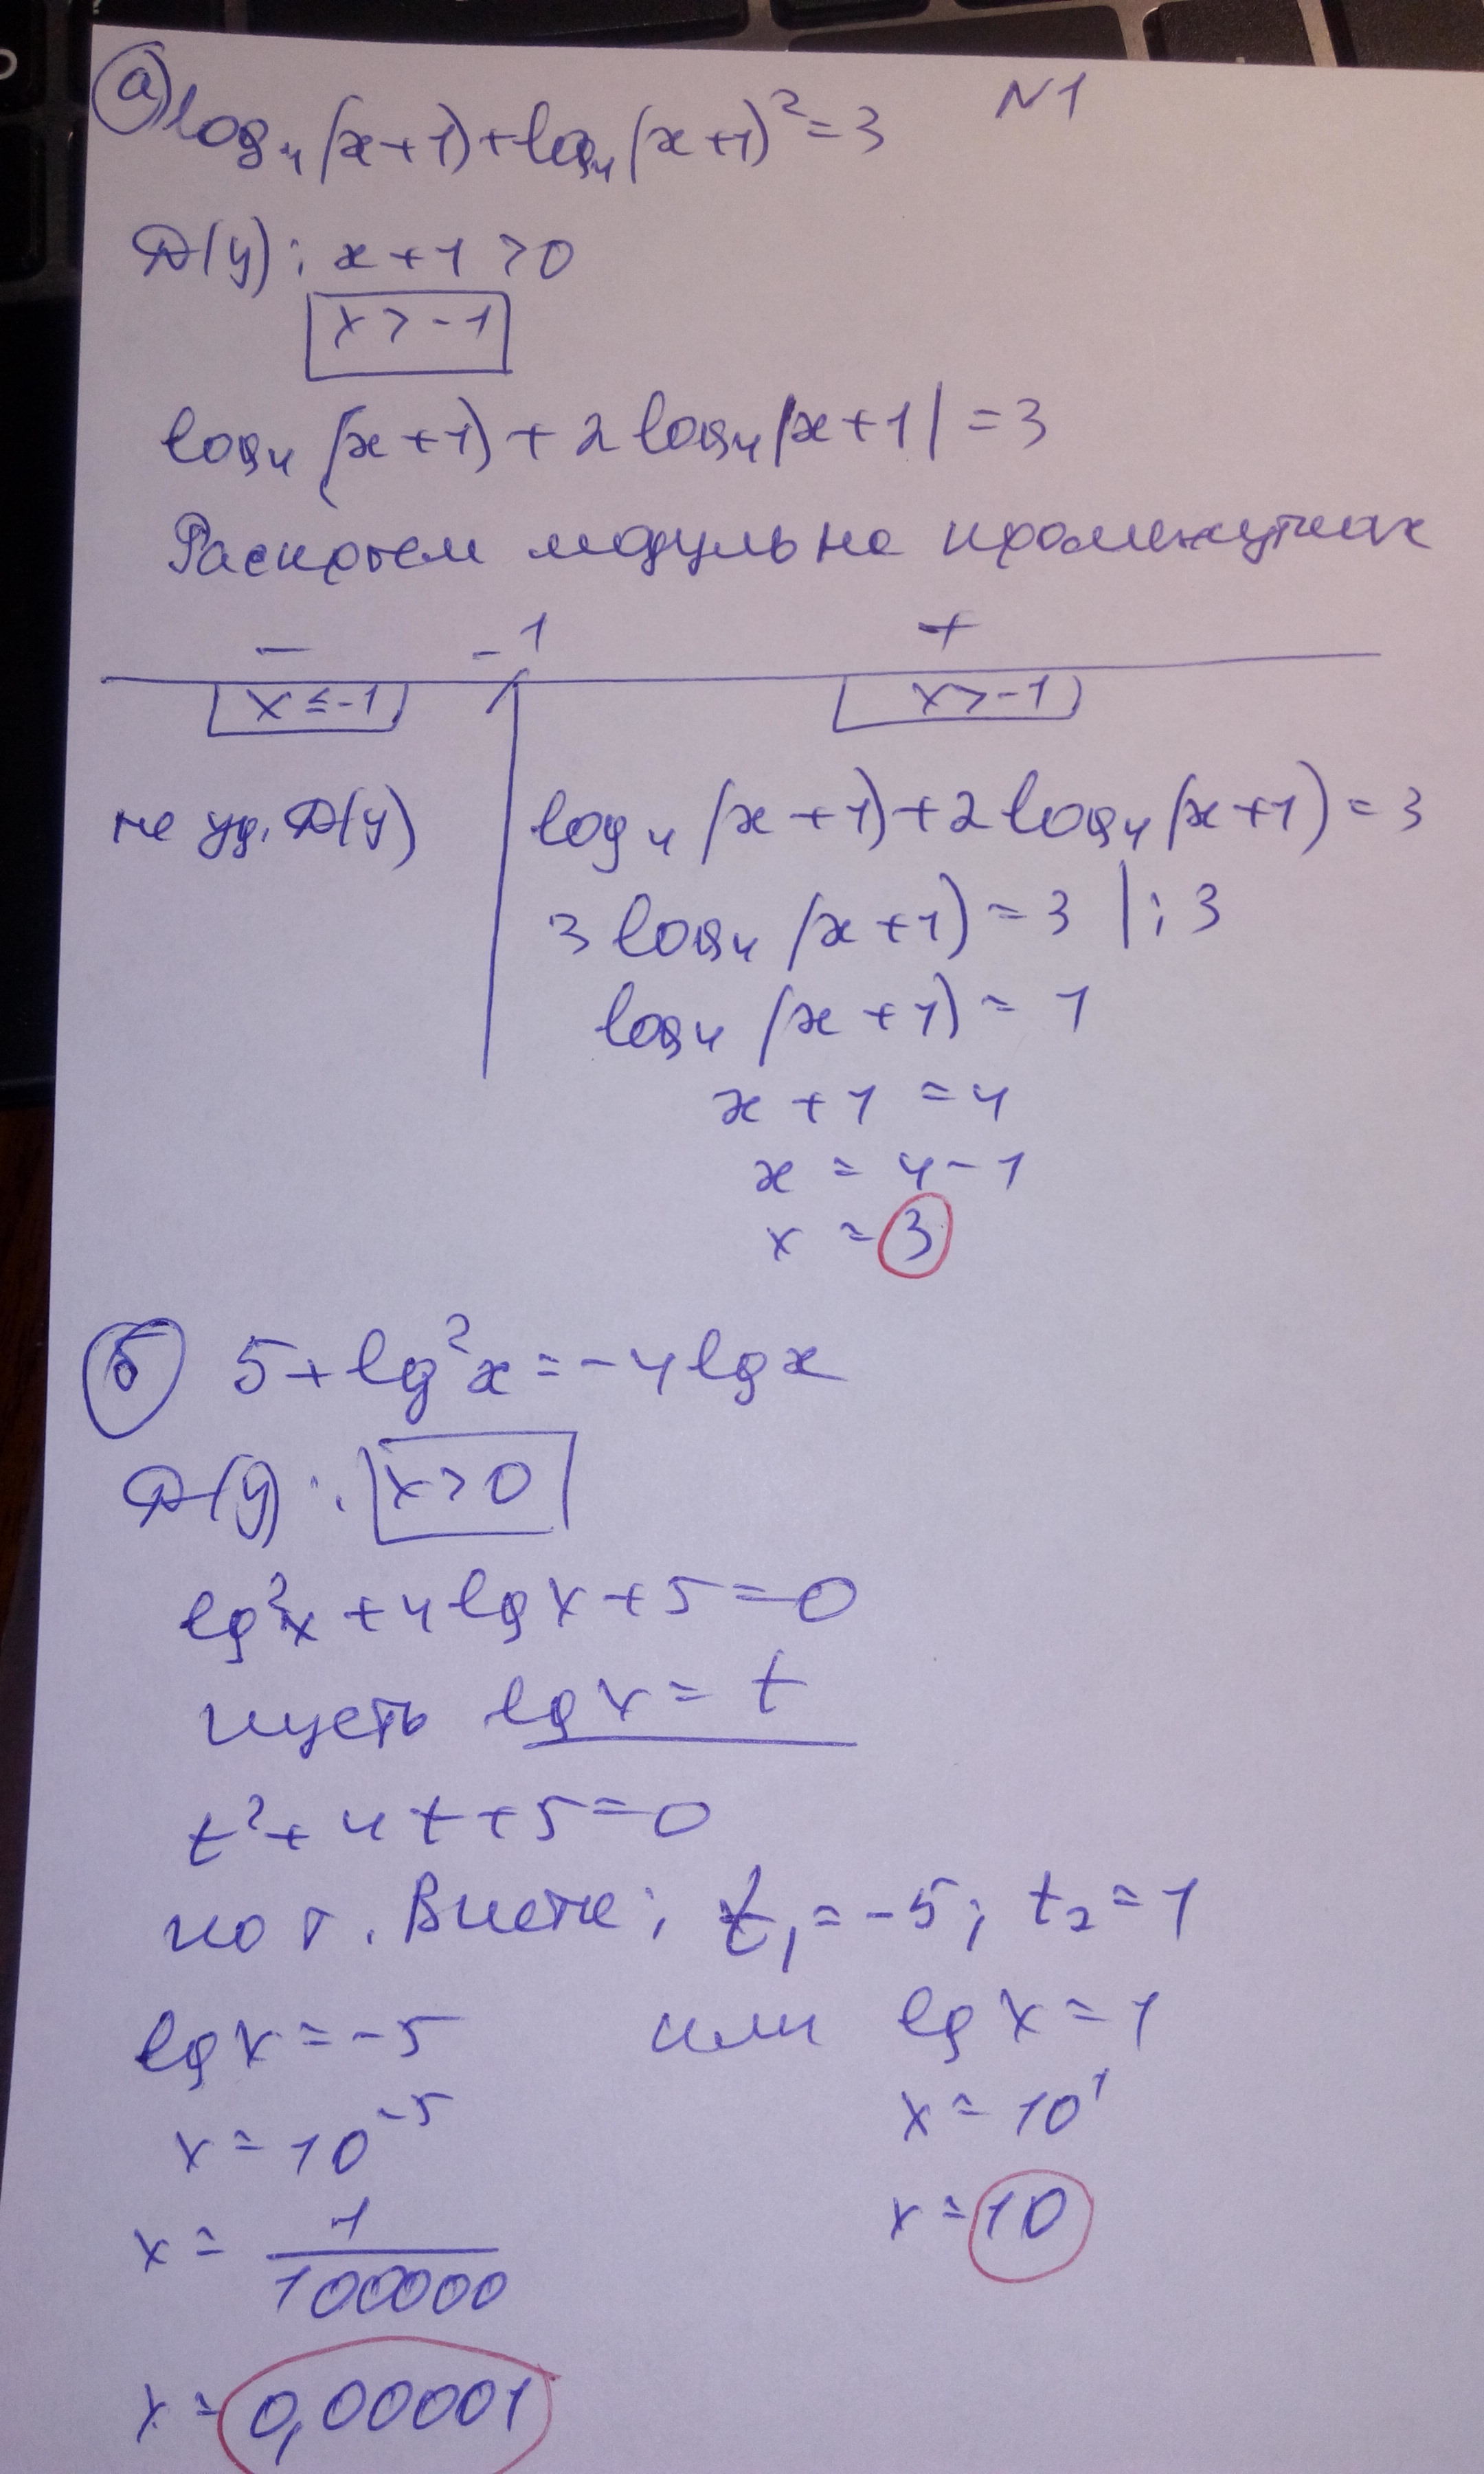 а) log₄(x+1)+log₄(x+1)²=3 N1
Д(у): x+1>0
x>-1
log₄(x+1)+2log₄|x+1|=3
Раскроем модуль на промежутках
- -1 +
x≤-1 x>-1
не уд. Д(у) log₄(x+1)+2log₄(x+1)=3
3log₄(x+1)=3 |:3
log₄(x+1)=1
x+1=4
x=4-1
x=3
б) 5+lg²x=-4lgx
Д(у): x>0
lg²x+4lgx+5=0
пусть lgx=t
t²+4t+5=0
по т. Виета: t₁=-5; t₂=1
lgx=-5 или lgx=1
x=10⁻⁵ x=10¹
x=1/100000 x=10
x=0,00001